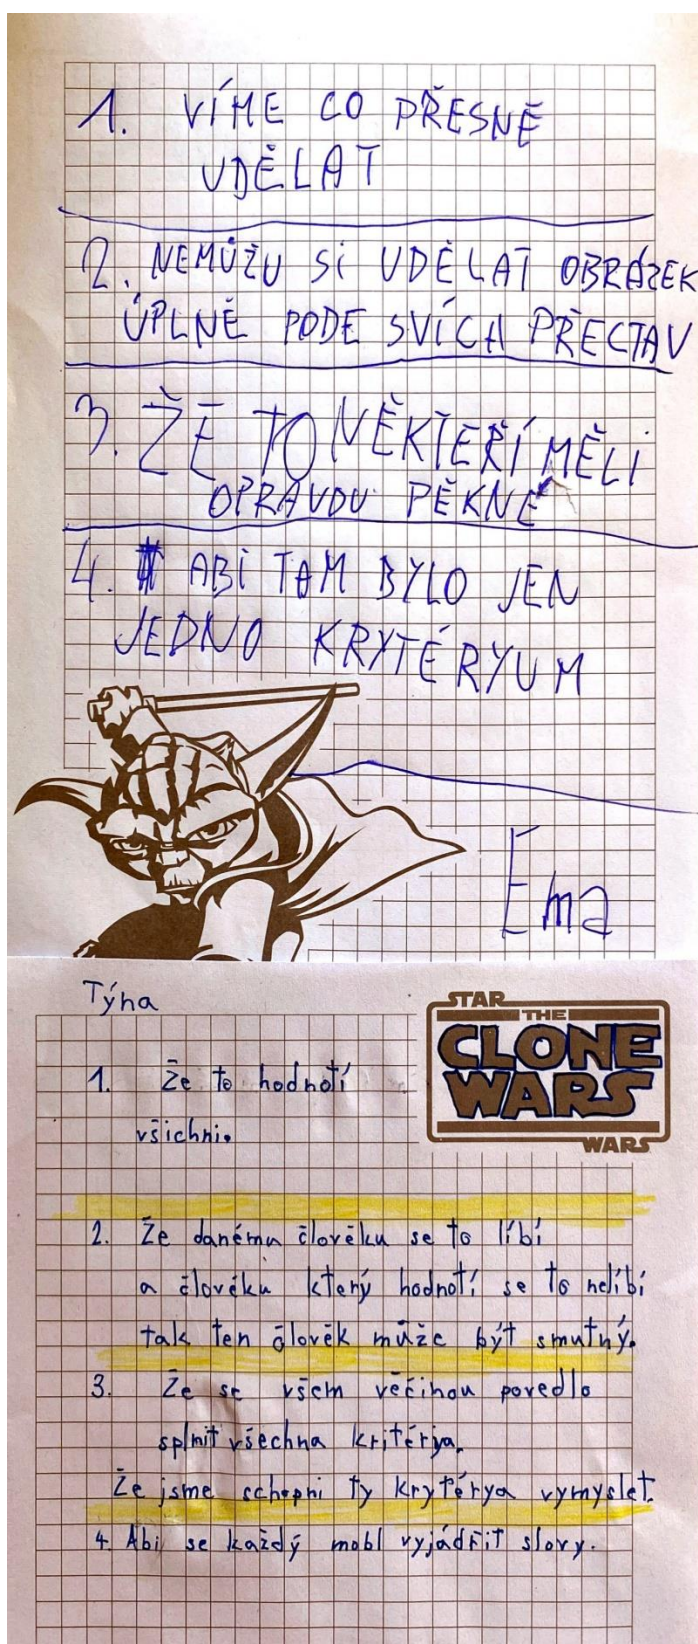 1. VÍME CO PŘESNĚ
UDĚLAT
2. NEMŮŽU SI UDĚLAT OBRÁZEK
ÚPLNĚ PODE SVÍCH PŘECTAV
3. ŽE TO NĚKTEŘÍ MĚLI
OPRAVDU PĚKNÉ
4. ABI TAM BYLO JEN
JEDNO KRYTÉRYUM
Ema
Týna
STAR
THE
CLONE
WARS
WARS
1. Že to hodnotí
všichni.
2. Že danému člověku se to líbí
a člověku který hodnotí se to nelíbí
tak ten člověk může být smutný.
3. Že se všem věčinou povedlo
splnit všechna kritérja.
Že jsme schopni ty krytérya vymyslet.
4. Abi se každý mohl vyjádřit slovy.